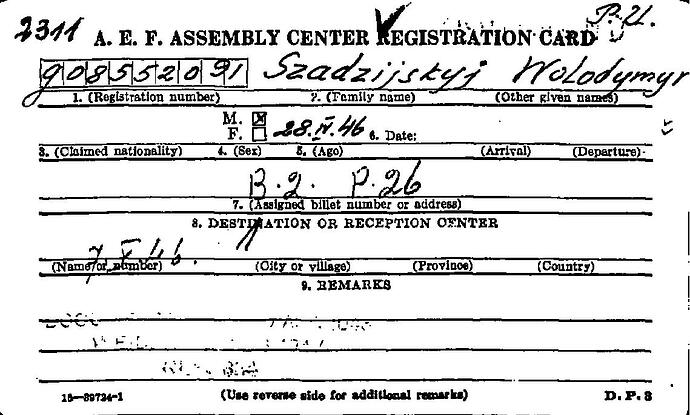 2311 A. E. F. ASSEMBLY CENTER REGISTRATION CARD P. 21.
908552091 Szadzijskyj Wolodymyr
1. (Registration number) 2. (Family name) (Other given names)
M. ☒
F. ☐ 28.IV.46 6. Date:
3. (Claimed nationality) 4. (Sex) 5. (Age) (Arrival) (Departure)
B.2. P.26
7. (Assigned billet number or address)
8. DESTINATION OR RECEPTION CENTER
(Name or number) (City or village) (Province) (Country)
9. REMARKS
16—39724-1 (Use reverse side for additional remarks) D. P. 3